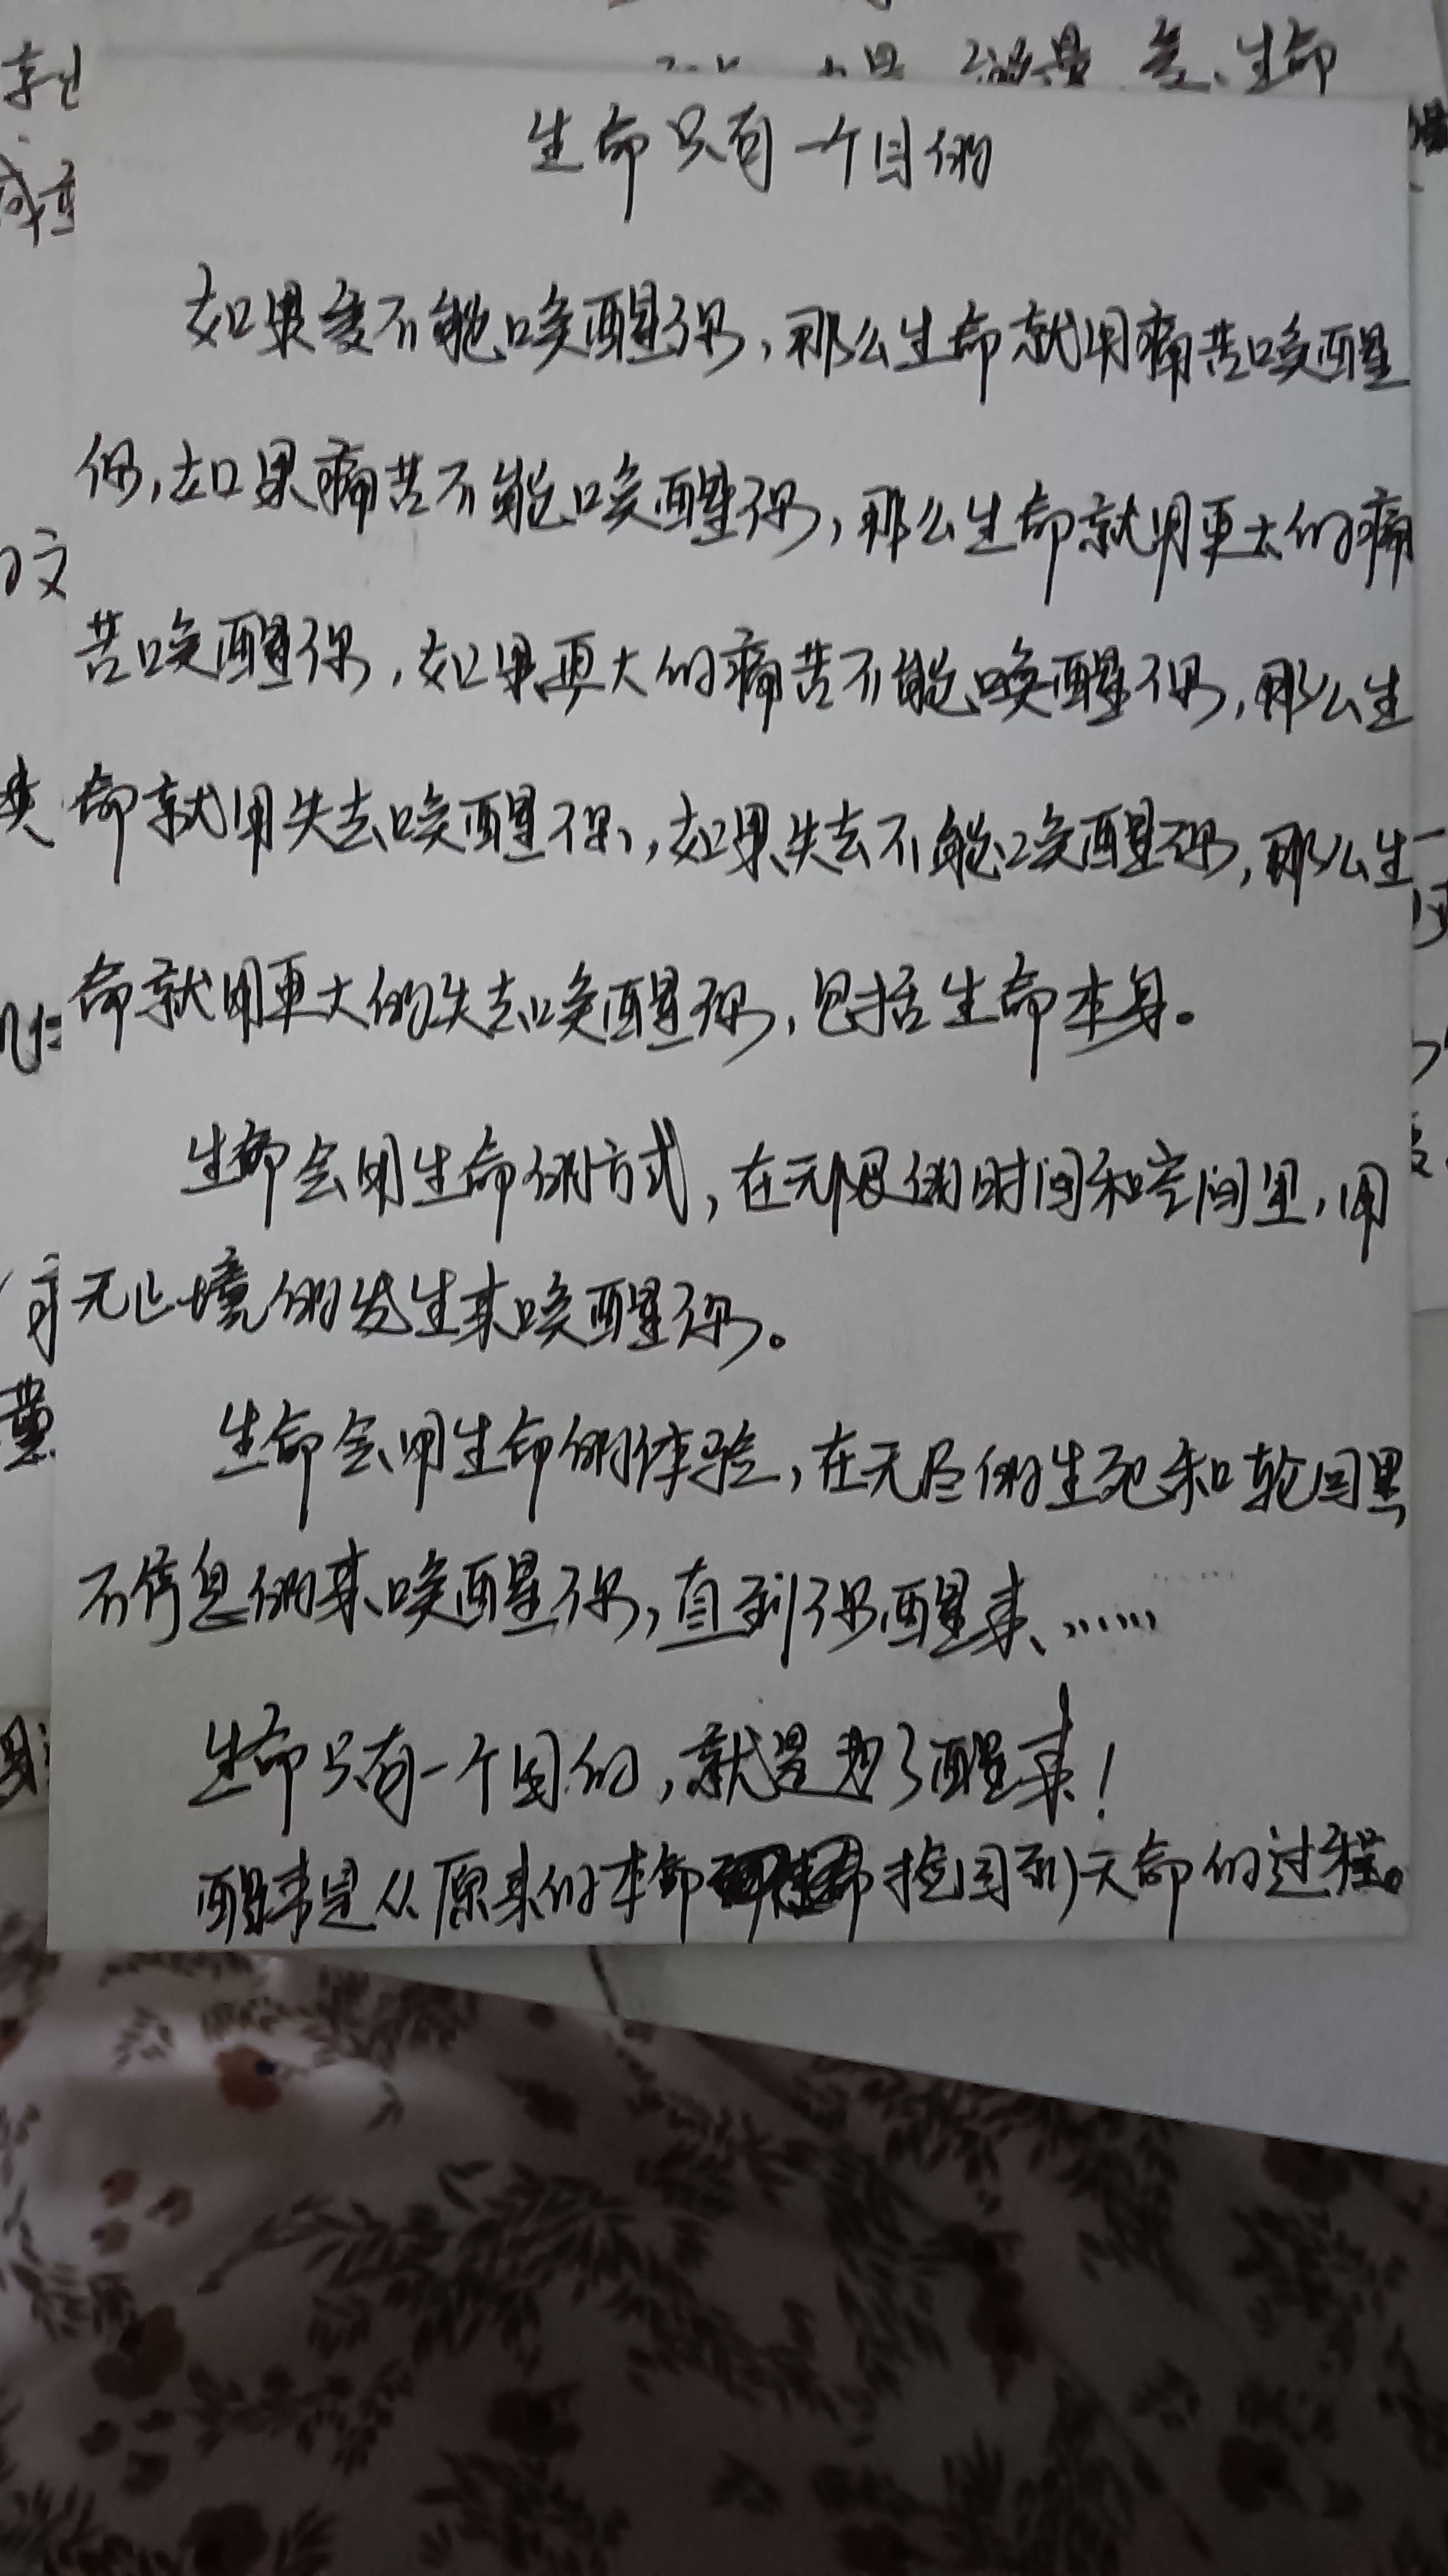 生命只有一个目的
如果爱不能唤醒你，那么生命就用痛苦唤醒
你，如果痛苦不能唤醒你，那么生命就用更大的痛
苦唤醒你，如果更大的痛苦不能唤醒你，那么生
命就用失去唤醒你，如果失去不能唤醒你，那么生
命就用更大的失去唤醒你，包括生命本身。
生命会用生命的方式，在无限的时间和空间里，用
无止境的发生来唤醒你。
生命会用生命的体验，在无尽的生死和轮回里
不停息的来唤醒你，直到你醒来……
生命只有一个目的，就是为了醒来！
醒来是从原来的本命回到天命的过程。